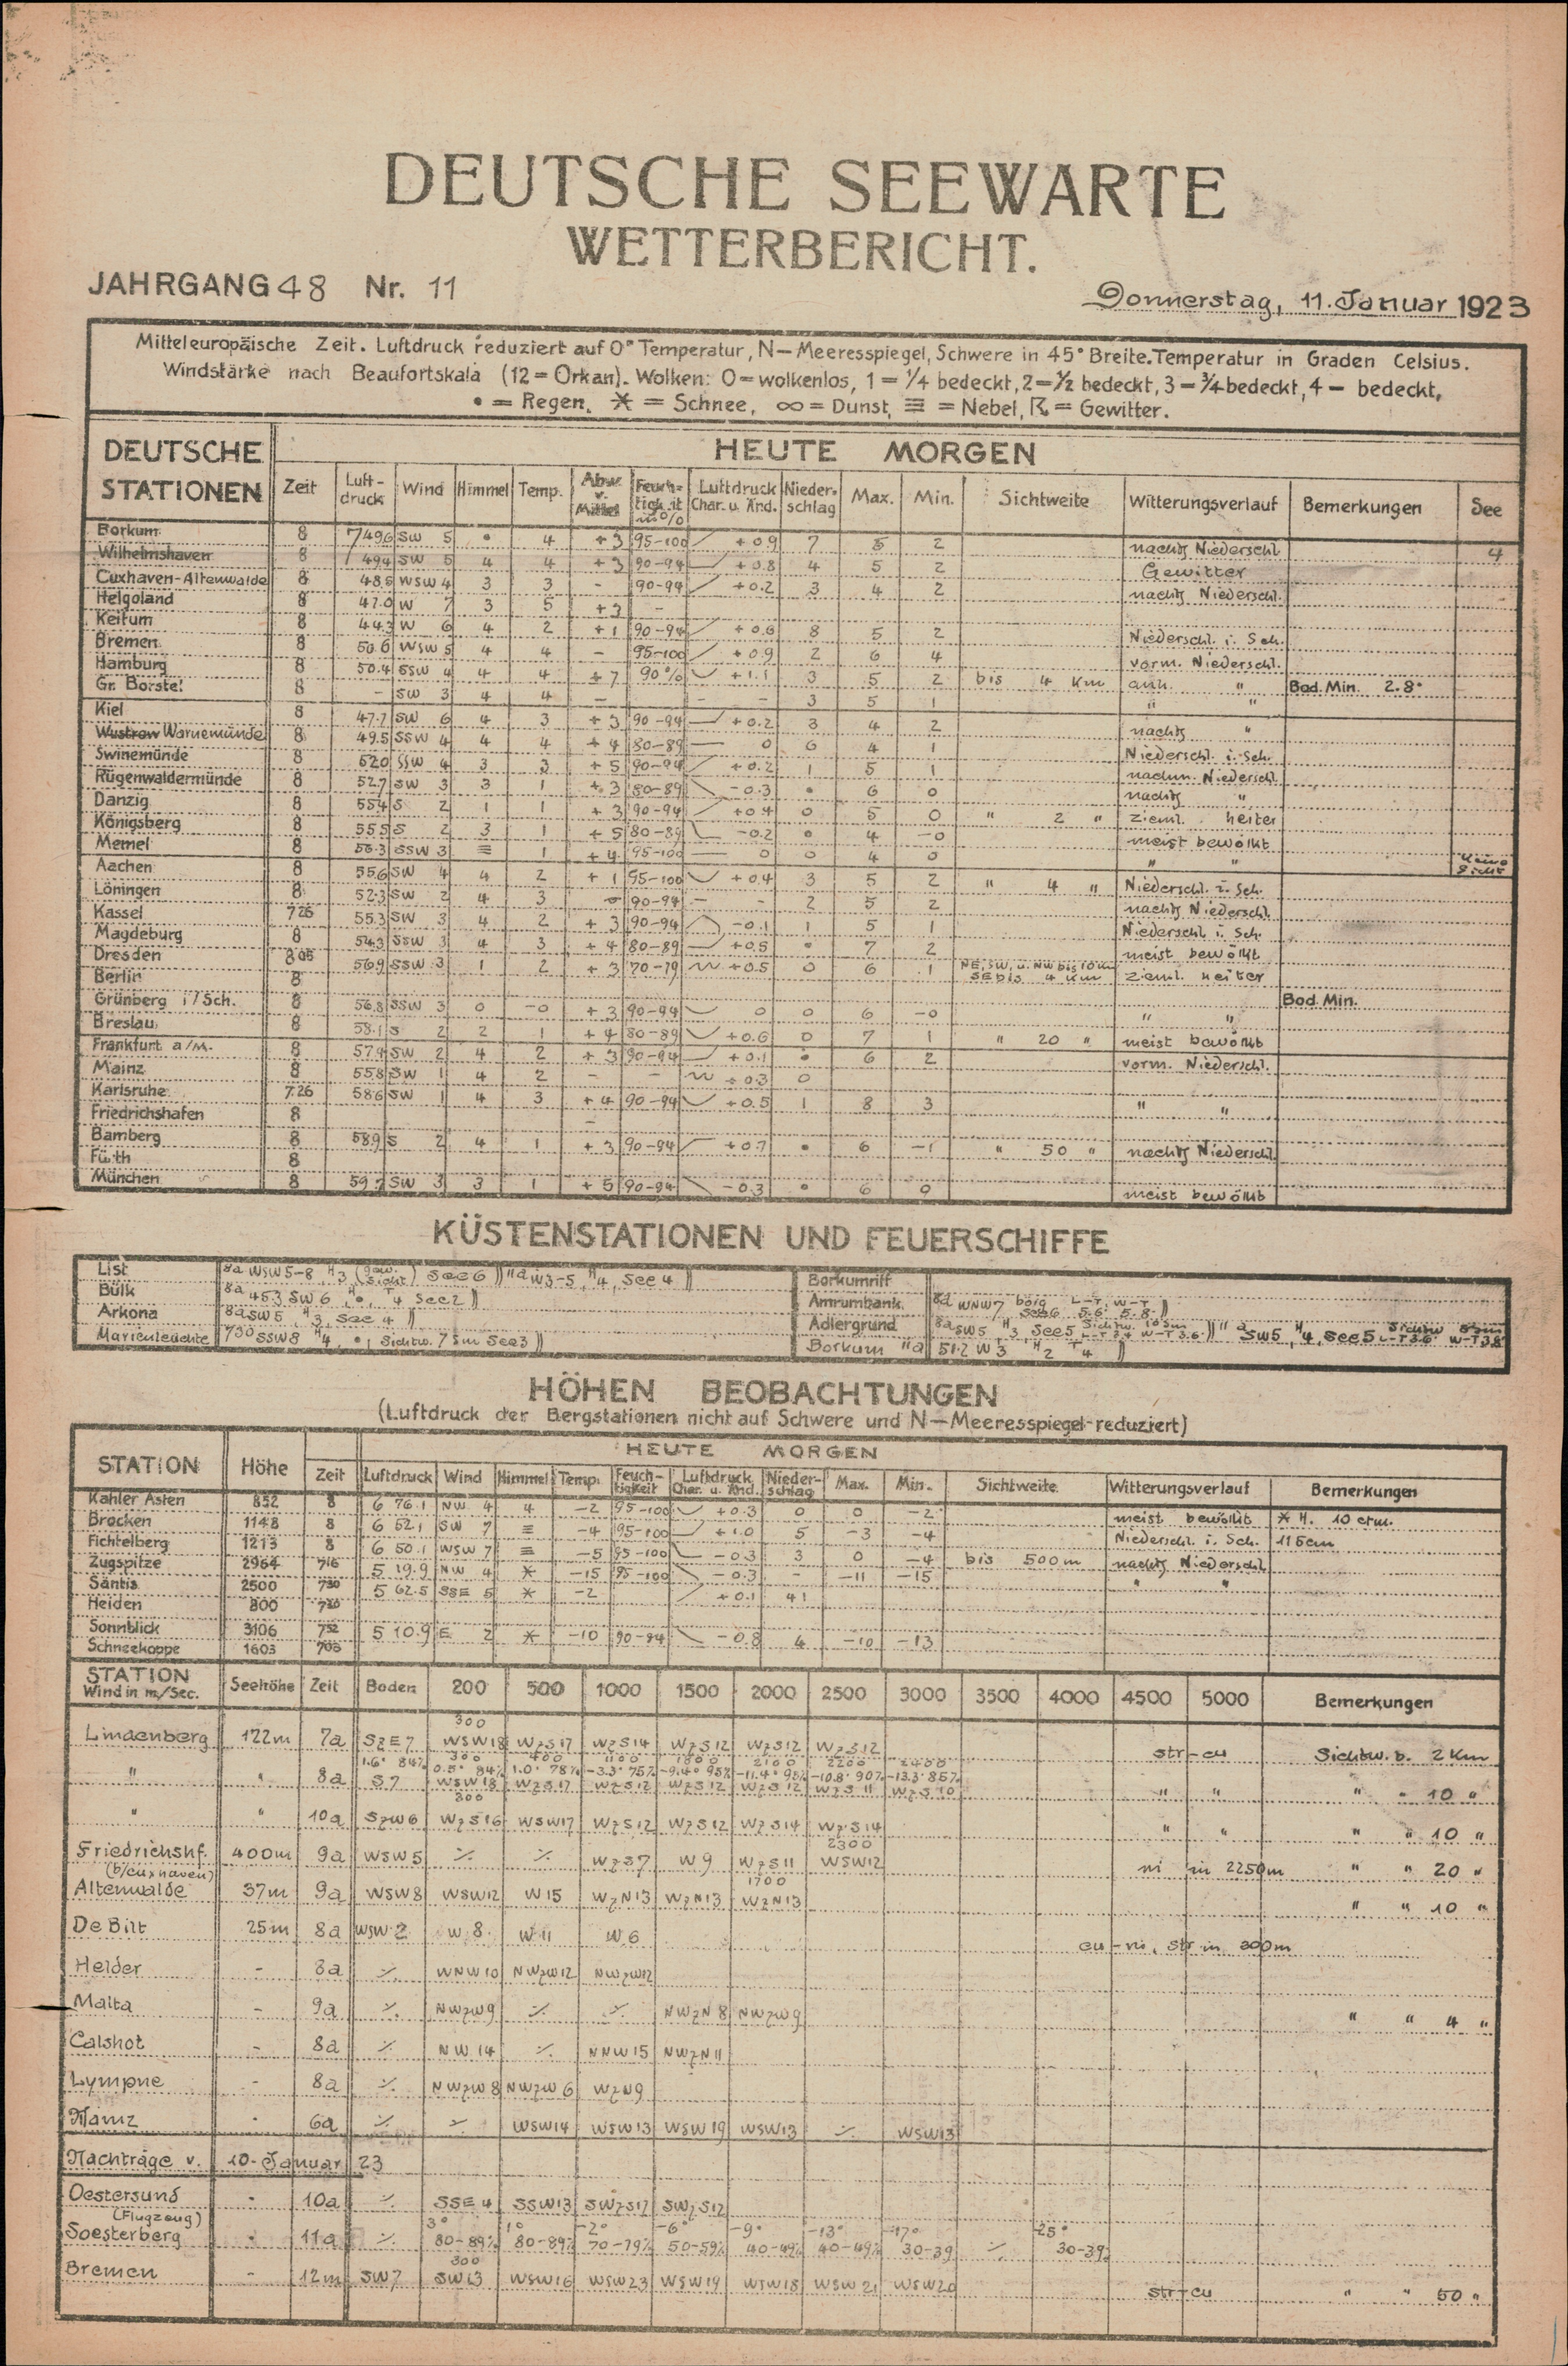 DEUTSCHE SEEWARTE
WETTERBERICHT.
JAHRGANG 48 Nr. 11
Donnerstag, 11. Januar 1923
Mitteleuropäische Zeit. Luftdruck reduziert auf 0° Temperatur, N—Meeresspiegel, Schwere in 45° Breite. Temperatur in Graden Celsius.
Windstärke nach Beaufortskala (12 = Orkan). Wolken: 0 = wolkenlos, 1 = 1/4 bedeckt, 2 = 1/2 bedeckt, 3 — 3/4 bedeckt, 4 — bedeckt,
• = Regen, ✶ = Schnee, ∞ = Dunst, ≡ = Nebel, ☈ = Gewitter.
DEUTSCHE STATIONEN HEUTE MORGEN
Zeit Luft-druck Wind Himmel Temp. Abw. v. Mittel Feuch-tigk.it in % Luftdruck Char. u. Änd. Nieder-schlag Max. Min. Sichtweite Witterungsverlauf Bemerkungen See
Borkum 8 749.6 SW 5 • 4 +3 95-100 +0.9 7 5 2 nachts Niederschl. 4
Wilhelmshaven 8 49.4 SW 5 4 4 +3 90-94 +0.8 4 5 2 Gewitter
Cuxhaven-Altenwalde 8 48.5 WSW 4 3 3 - 90-94 +0.2 3 4 2 nachts Niederschl.
Helgoland 8 47.0 W 7 3 5 +3 -
Keitum 8 44.3 W 6 4 2 +1 90-94 +0.6 8 5 2 Niederschl. i. Sch.
Bremen 8 50.6 WSW 5 4 4 - 95-100 +0.9 2 6 4 vorm. Niederschl.
Hamburg 8 50.4 SSW 4 4 4 +7 90% +1.1 3 5 2 bis 4 Km anh. " Bod. Min. 2.8°
Gr. Borstel 8 - SW 3 4 4 - - 3 5 1 " "
Kiel 8 47.7 SW 6 4 3 +3 90-94 +0.2 3 4 2 nachts "
Wustrow Warnemünde 8 49.5 SSW 4 4 4 +4 80-89 0 6 4 1 Niederschl. i. Sch.
Swinemünde 8 52.0 SSW 4 3 3 +5 90-94 +0.2 1 5 1 nachm. Niederschl.
Rügenwaldermünde 8 52.7 SW 3 3 1 +3 80-89 -0.3 • 6 0 nachts "
Danzig 8 55.4 S 2 1 1 +3 90-94 +0.4 0 5 0 " 2 " zieml. heiter
Königsberg 8 55.5 S 2 3 1 +5 80-89 -0.2 • 4 -0 meist bewölkt
Memel 8 56.3 SSW 3 ≡ 1 +4 95-100 0 0 4 0 " " Keine Sicht
Aachen 8 55.6 SW 4 4 2 +1 95-100 +0.4 3 5 2 " 4 " Niederschl. i. Sch.
Löningen 8 52.3 SW 2 4 3 90-94 - - 2 5 2 nachts Niederschl.
Kassel 7 26 55.3 SW 3 4 2 +3 90-94 -0.1 1 5 1 Niederschl. i. Sch.
Magdeburg 8 54.3 SSW 3 4 3 +4 80-89 +0.5 • 7 2 meist bewölkt
Dresden 8 05 56.9 SSW 3 1 2 +3 70-79 +0.5 0 6 1 NE, SW, u. NW bis 10 Km SE bis 4 Km zieml. heiter
Berlin 8 Bod. Min.
Grünberg i/Sch. 8 56.8 SSW 3 0 -0 +3 90-94 0 0 6 -0 " "
Breslau 8 58.1 S 2 2 1 +4 80-89 +0.6 0 7 1 " 20 " meist bewölkt
Frankfurt a/M. 8 57.4 SW 2 4 2 +3 90-94 +0.1 • 6 2 vorm. Niederschl.
Mainz 8 55.8 SW 1 4 2 - - +0.3 0
Karlsruhe 7 26 58.6 SW 1 4 3 +4 90-94 +0.5 1 8 3 " "
Friedrichshafen 8 -
Bamberg 8 58.9 S 2 4 1 +3 90-94 +0.7 • 6 -1 " 50 " nachts Niederschl.
Fürth 8
München 8 59.2 SW 3 3 1 +5 90-94 -0.3 • 6 0 meist bewölkt
KÜSTENSTATIONEN UND FEUERSCHIFFE
List 8a WSW 5-8, H 3 (Sicht) See 6 )) 11a W 3-5, H 4, See 4 ))
Bülk 8a 45.3 SW 6, H •, T 4 See 2 ))
Arkona 8a SW 5, H 3, See 4 ))
Marienleuchte 7 30 SSW 8 H 4, •, Sichtw. 7 sm See 3 ))
Borkumriff
Amrumbank 8a WNW 7 böig See 6 L-T. 5.6 W-T 5.8 ))
Adlergrund 8a SW 5, H 3 See 5 Sichtw. 10 sm L-T 3.4 W-T 3.6 )) 11a SW 5, H 4, See 5 Sichtw. L-T 3.6 W-T 3.8
Borkum 11a 51.2 W 3 H 2 T 4 ))
HÖHEN BEOBACHTUNGEN
(Luftdruck der Bergstationen nicht auf Schwere und N—Meeresspiegel reduziert)
STATION Höhe HEUTE MORGEN
Zeit Luftdruck Wind Himmel Temp. Feuch-tigkeit Luftdruck Char. u. Änd. Nieder-schlag Max. Min. Sichtweite Witterungsverlauf Bemerkungen
Kahler Asten 852 8 6 76.1 NW 4 4 -2 95-100 +0.3 0 0 -2 meist bewölkt ✶ H. 10 ctm.
Brocken 1148 8 6 52.1 SW 7 ≡ -4 95-100 +1.0 5 -3 -4 Niederschl. i. Sch. 115 cm
Fichtelberg 1213 8 6 50.1 WSW 7 ≡ -5 95-100 -0.3 3 0 -4 bis 500 m nachts Niederschl.
Zugspitze 2964 7 16 5 19.9 NW 4 ✶ -15 95-100 -0.3 - -11 -15 " "
Säntis 2500 7 30 5 62.5 SSE 5 ✶ -2 +0.1 41
Heiden 800 7 30
Sonnblick 3106 7 52 5 10.9 E 2 ✶ -10 90-94 -0.8 4 -10 -13
Schneekoppe 1603 7 05
STATION Wind in m/Sec. Seehöhe Zeit Boden 200 500 1000 1500 2000 2500 3000 3500 4000 4500 5000 Bemerkungen
300
Lindenberg 122m 7a SzE 7 WSW 18 WzS 17 WzS 14 WzS 12 WzS 12 WzS 12 str-cu Sichtw. b. 2 Km
300 400 1100 1800 2100 2200 2400
1.6° 84% 0.5° 84% 1.0° 78% -3.3° 75% -9.4° 95% -11.4° 95% -10.8° 90% -13.3° 85%
" " 8a S 7 WSW 18 WzS 17 WzS 12 WzS 12 WzS 12 WzS 11 WzS 10 " " " " 10 "
300
" " 10a SzW 6 WzS 16 WSW 17 WzS 12 WzS 12 WzS 14 WzS 14 " " " " 10 "
2300
Friedrichshf. 400m 9a WSW 5 ٪ ٪ WzS 7 W 9 WzS 11 WSW 12 ni in 2250m " " 20 "
(b/Cuxhaven) 1700
Altenwalde 37m 9a WSW 8 WSW 12 W 15 WzN 13 WzN 13 WzN 13 " " 10 "
De Bilt 25m 8a WSW 2 W 8 W 11 W 6 cu-ni, str in 300m
Helder - 8a ٪ WNW 10 NWzW 12 NWzW 12
Malta - 9a ٪ NWzW 9 ٪ ٪ NWzN 8 NWzW 9 " " 4 "
Calshot - 8a ٪ NW 14 ٪ NNW 15 NWzN 11
Lympne - 8a ٪ NWzW 8 NWzW 6 WzN 9
Mainz - 6a ٪ ٪ WSW 14 WSW 13 WSW 19 WSW 13 ٪ WSW 13
Nachträge v. 10. Januar 23
Oestersund - 10a ٪ SSE 4 SSW 13 SWzS 17 SWzS 12
(Flugzeug) 3° 1° -2° -6° -9° -13° -17° -25°
Soesterberg " 11a ٪ 80-89% 80-89% 70-79% 50-59% 40-49% 40-49% 30-39 ٪ 30-39%
300
Bremen - 12m SW 7 SW 13 WSW 16 WSW 23 WSW 19 WSW 18 WSW 21 WSW 20 str-cu " " 50 "